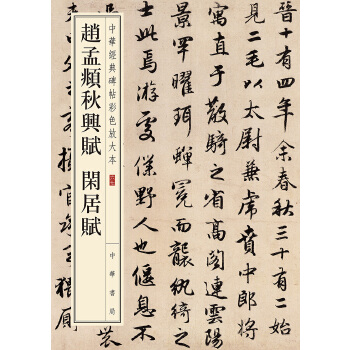 晉十有四年余春秋三十有二始
見二毛以太尉兼虎賁中郎將
寓直于散騎之省高閣連雲陽
景罕曜珥蟬冕而襲紈綺之
士此焉游處僕野人也偃息不
中華經典碑帖彩色放大本
趙孟頫秋興賦 閑居賦
中華書局